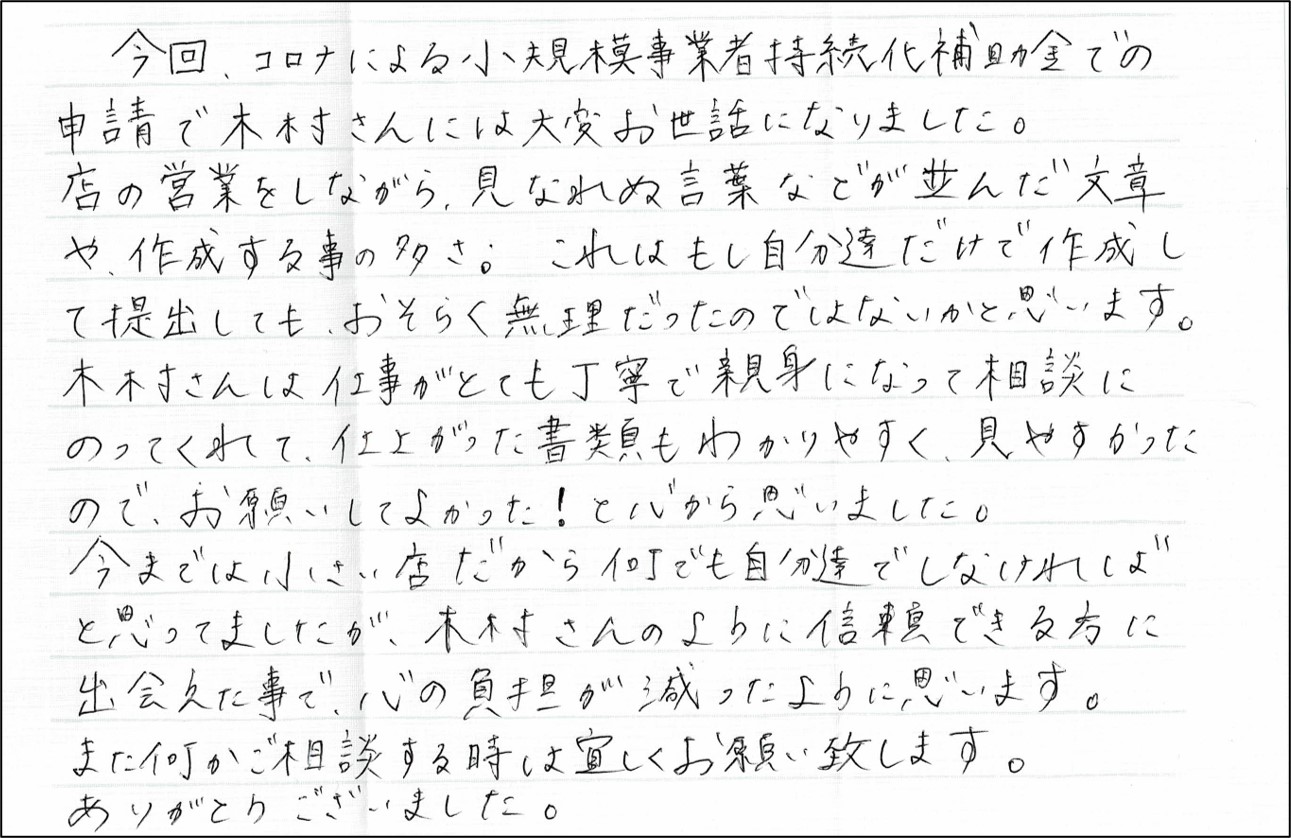 今回、コロナによる小規模事業者持続化補助金での
申請で木村さんには大変お世話になりました。
店の営業をしながら、見なれぬ言葉などが並んだ文章
や、作成する事の多さ。これはもし自分達だけで作成し
て提出しても、おそらく無理だったのではないかと思います。
木村さんは仕事がとても丁寧で親身になって相談に
のってくれて、仕上がった書類もわかりやすく、見やすかった
ので、お願いしてよかった！と心から思いました。
今までは小さい店だから何でも自分達でしなければ
と思ってましたが、木村さんのように信頼できる方に
出会えた事で、心の負担が減ったように思います。
また何かご相談する時は宜しくお願い致します。
ありがとうございました。